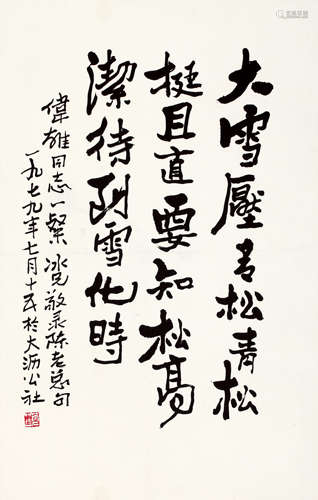 大雪壓青松青松
挺且直要知松高
潔待到雪化時
偉雄同志一粲 冰兄敬录陈老总句
一九七九年七月十五於大沥公社